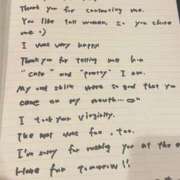 Thank you for contacting me.
You like tall women, so you chose
me :)
I was very happy
Thank you for telling me how
"cute" and "pretty" I am.
My oral skills were so good that you
came on my mouth
I took your virginity.
The rest was fun, too.
I'm sorry for making you at the
Have fun tomorrow!!